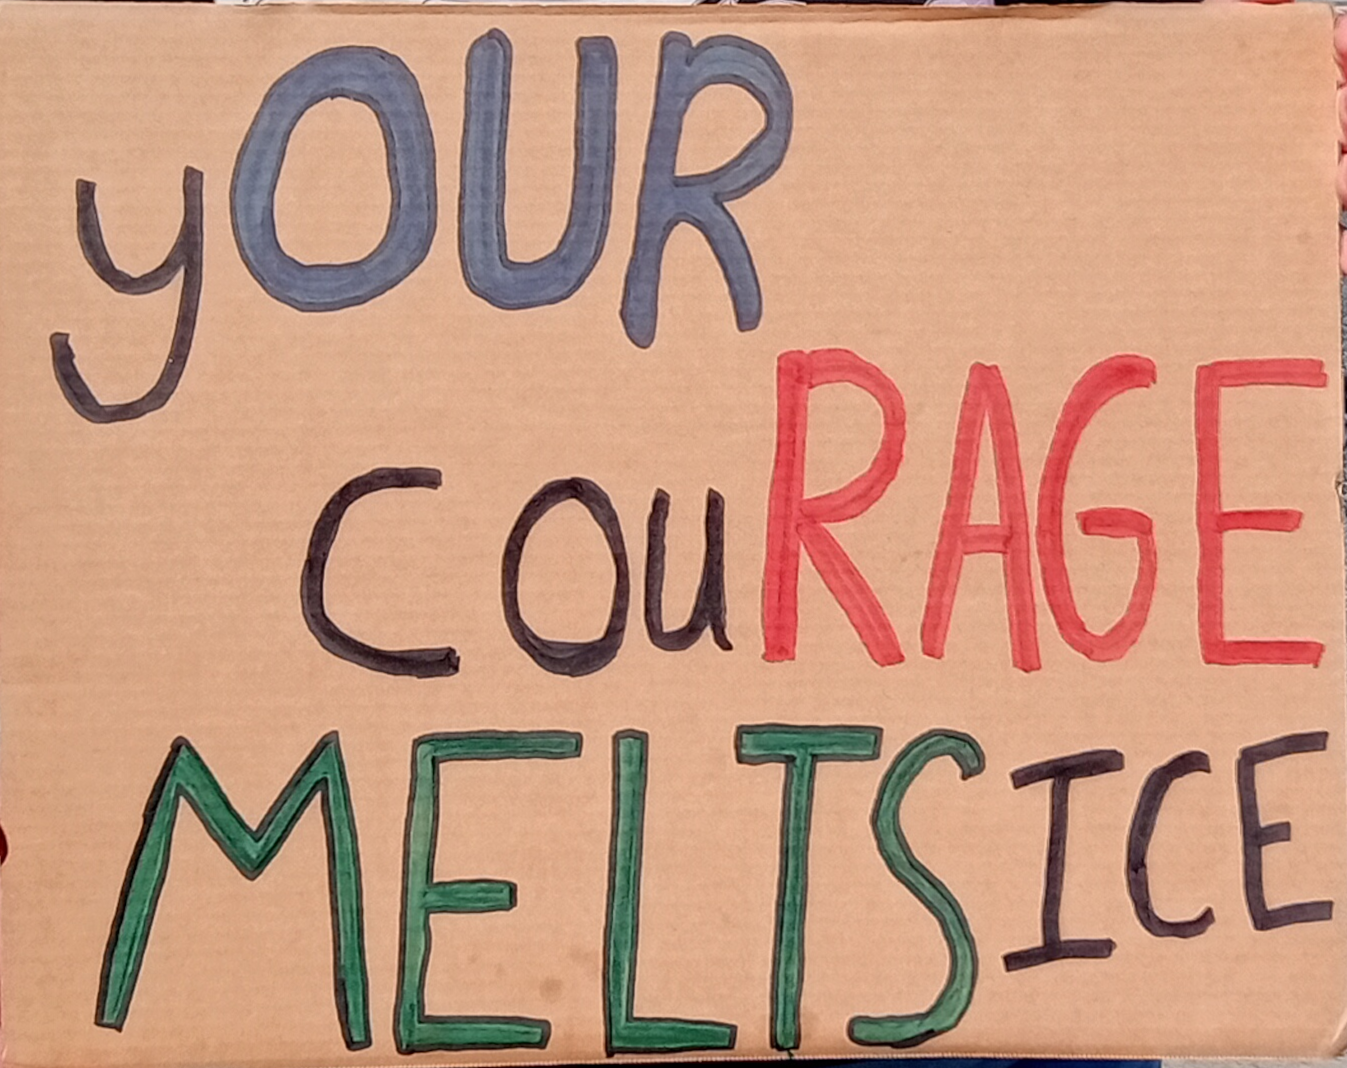 yOUR
COuRAGE
MELTS ICE